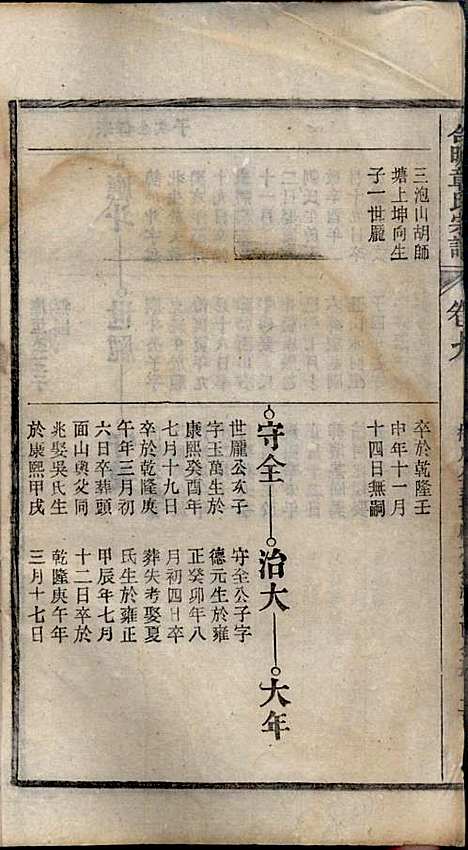 三泡山胡師
塘上坤向生
子一世龎
卒於乾隆壬
申年十一月
十四日無嗣
守全
治大
大年
世龎公亥子
字玉萬生於
康熙癸酉年
七月十九日
卒於乾隆庚
午年三月初
六日卒葬頭
面山與父同
兆娶吳氏生
於康熙甲戌
守全公子字
德元生於雍
正癸卯年八
月初四日卒
葬失考娶夏
氏生於雍正
甲辰年七月
十二日卒於
乾隆庚午年
三月十七日
章氏宗譜
卷九